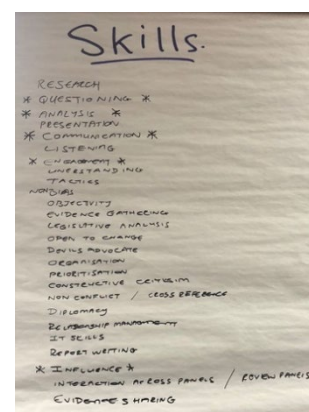 Skills.
RESEARCH
* QUESTIONING *
* ANALYSIS *
PRESENTATION
* COMMUNICATION *
LISTENING
* ENGAGEMENT *
UNDERSTANDING
TACTICS
NON BIAS
OBJECTIVITY
EVIDENCE GATHERING
LEGISLATIVE ANALYSIS
OPEN TO CHANGE
DEVILS ADVOCATE
ORGANISATION
PRIORITISATION
CONSTRUCTIVE CRITISIM
NON CONFLICT / CROSS REFERENCE
DIPLOMACY
RELATIONSHIP MANAGEMENT
IT SKILLS
REPORT WRITING
* INFLUENCE *
INTERACTION ACROSS PANELS / REVIEW PANELS
EVIDENCE SHARING